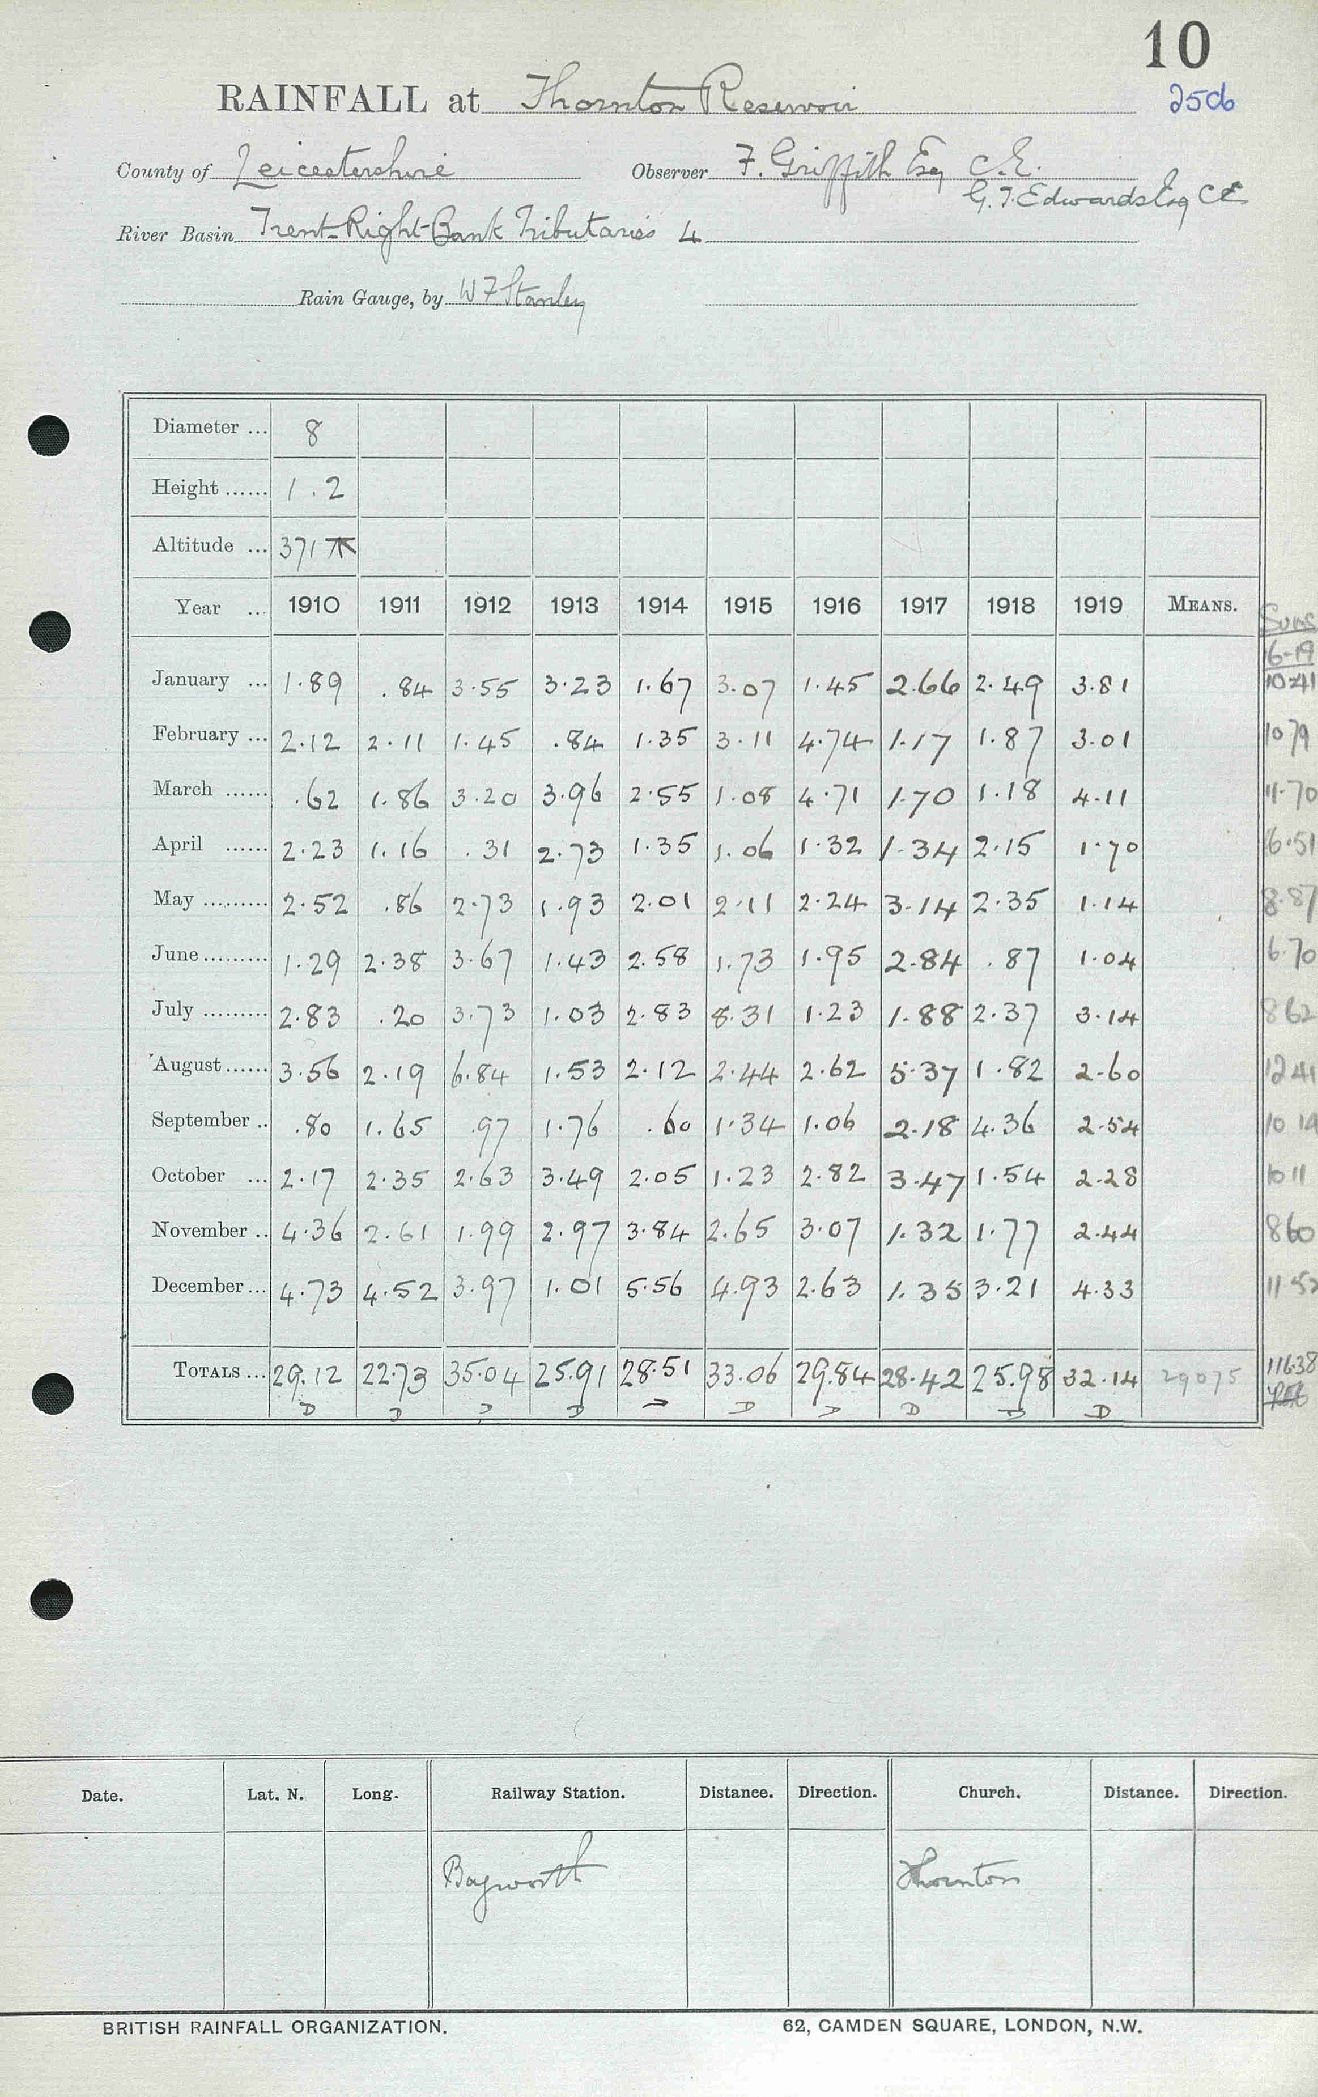 10
RAINFALL at Thornton Reservoir 2506
County of Leicestershire Observer F. Griffith Esq C.E.
G.T. Edwards Esq CE
River Basin Trent-Right-Bank Tributaries 4
Rain Gauge, by W F Stanley
Diameter ... 8
Height ...... 1.2
Altitude ... 371
Year ... 1910 1911 1912 1913 1914 1915 1916 1917 1918 1919 MEANS. Sums
16-19
January ... 1.89 .84 3.55 3.23 1.67 3.07 1.45 2.66 2.49 3.81 10.41
February ... 2.12 2.11 1.45 .84 1.35 3.11 4.74 1.17 1.87 3.01 10 79
March ...... .62 1.86 3.20 3.96 2.55 1.08 4.71 1.70 1.18 4.11 11.70
April ...... 2.23 1.16 .31 2.73 1.35 1.06 1.32 1.34 2.15 1.70 6.51
May ......... 2.52 .86 2.73 1.93 2.01 2.11 2.24 3.14 2.35 1.14 8.87
June ......... 1.29 2.38 3.67 1.43 2.58 1.73 1.95 2.84 .87 1.04 6.70
July ......... 2.83 .20 3.73 1.03 2.83 8.31 1.23 1.88 2.37 3.14 8 62
August ...... 3.56 2.19 6.84 1.53 2.12 2.44 2.62 5.37 1.82 2.60 12 41
September .. .80 1.65 .97 1.76 .60 1.34 1.06 2.18 4.36 2.54 10 14
October ... 2.17 2.35 2.63 3.49 2.05 1.23 2.82 3.47 1.54 2.28 10 11
November .. 4.36 2.61 1.99 2.97 3.84 2.65 3.07 1.32 1.77 2.44 8 60
December ... 4.73 4.52 3.97 1.01 5.56 4.93 2.63 1.35 3.21 4.33 11.52
TOTALS ... 29.12 22.73 35.04 25.91 28.51 33.06 29.84 28.42 25.98 32.14 29075 116.38
D D D D D D D D D D
Date. Lat. N. Long. Railway Station. Distance. Direction. Church. Distance. Direction.
Bagworth Thornton
BRITISH RAINFALL ORGANIZATION. 62, CAMDEN SQUARE, LONDON, N.W.